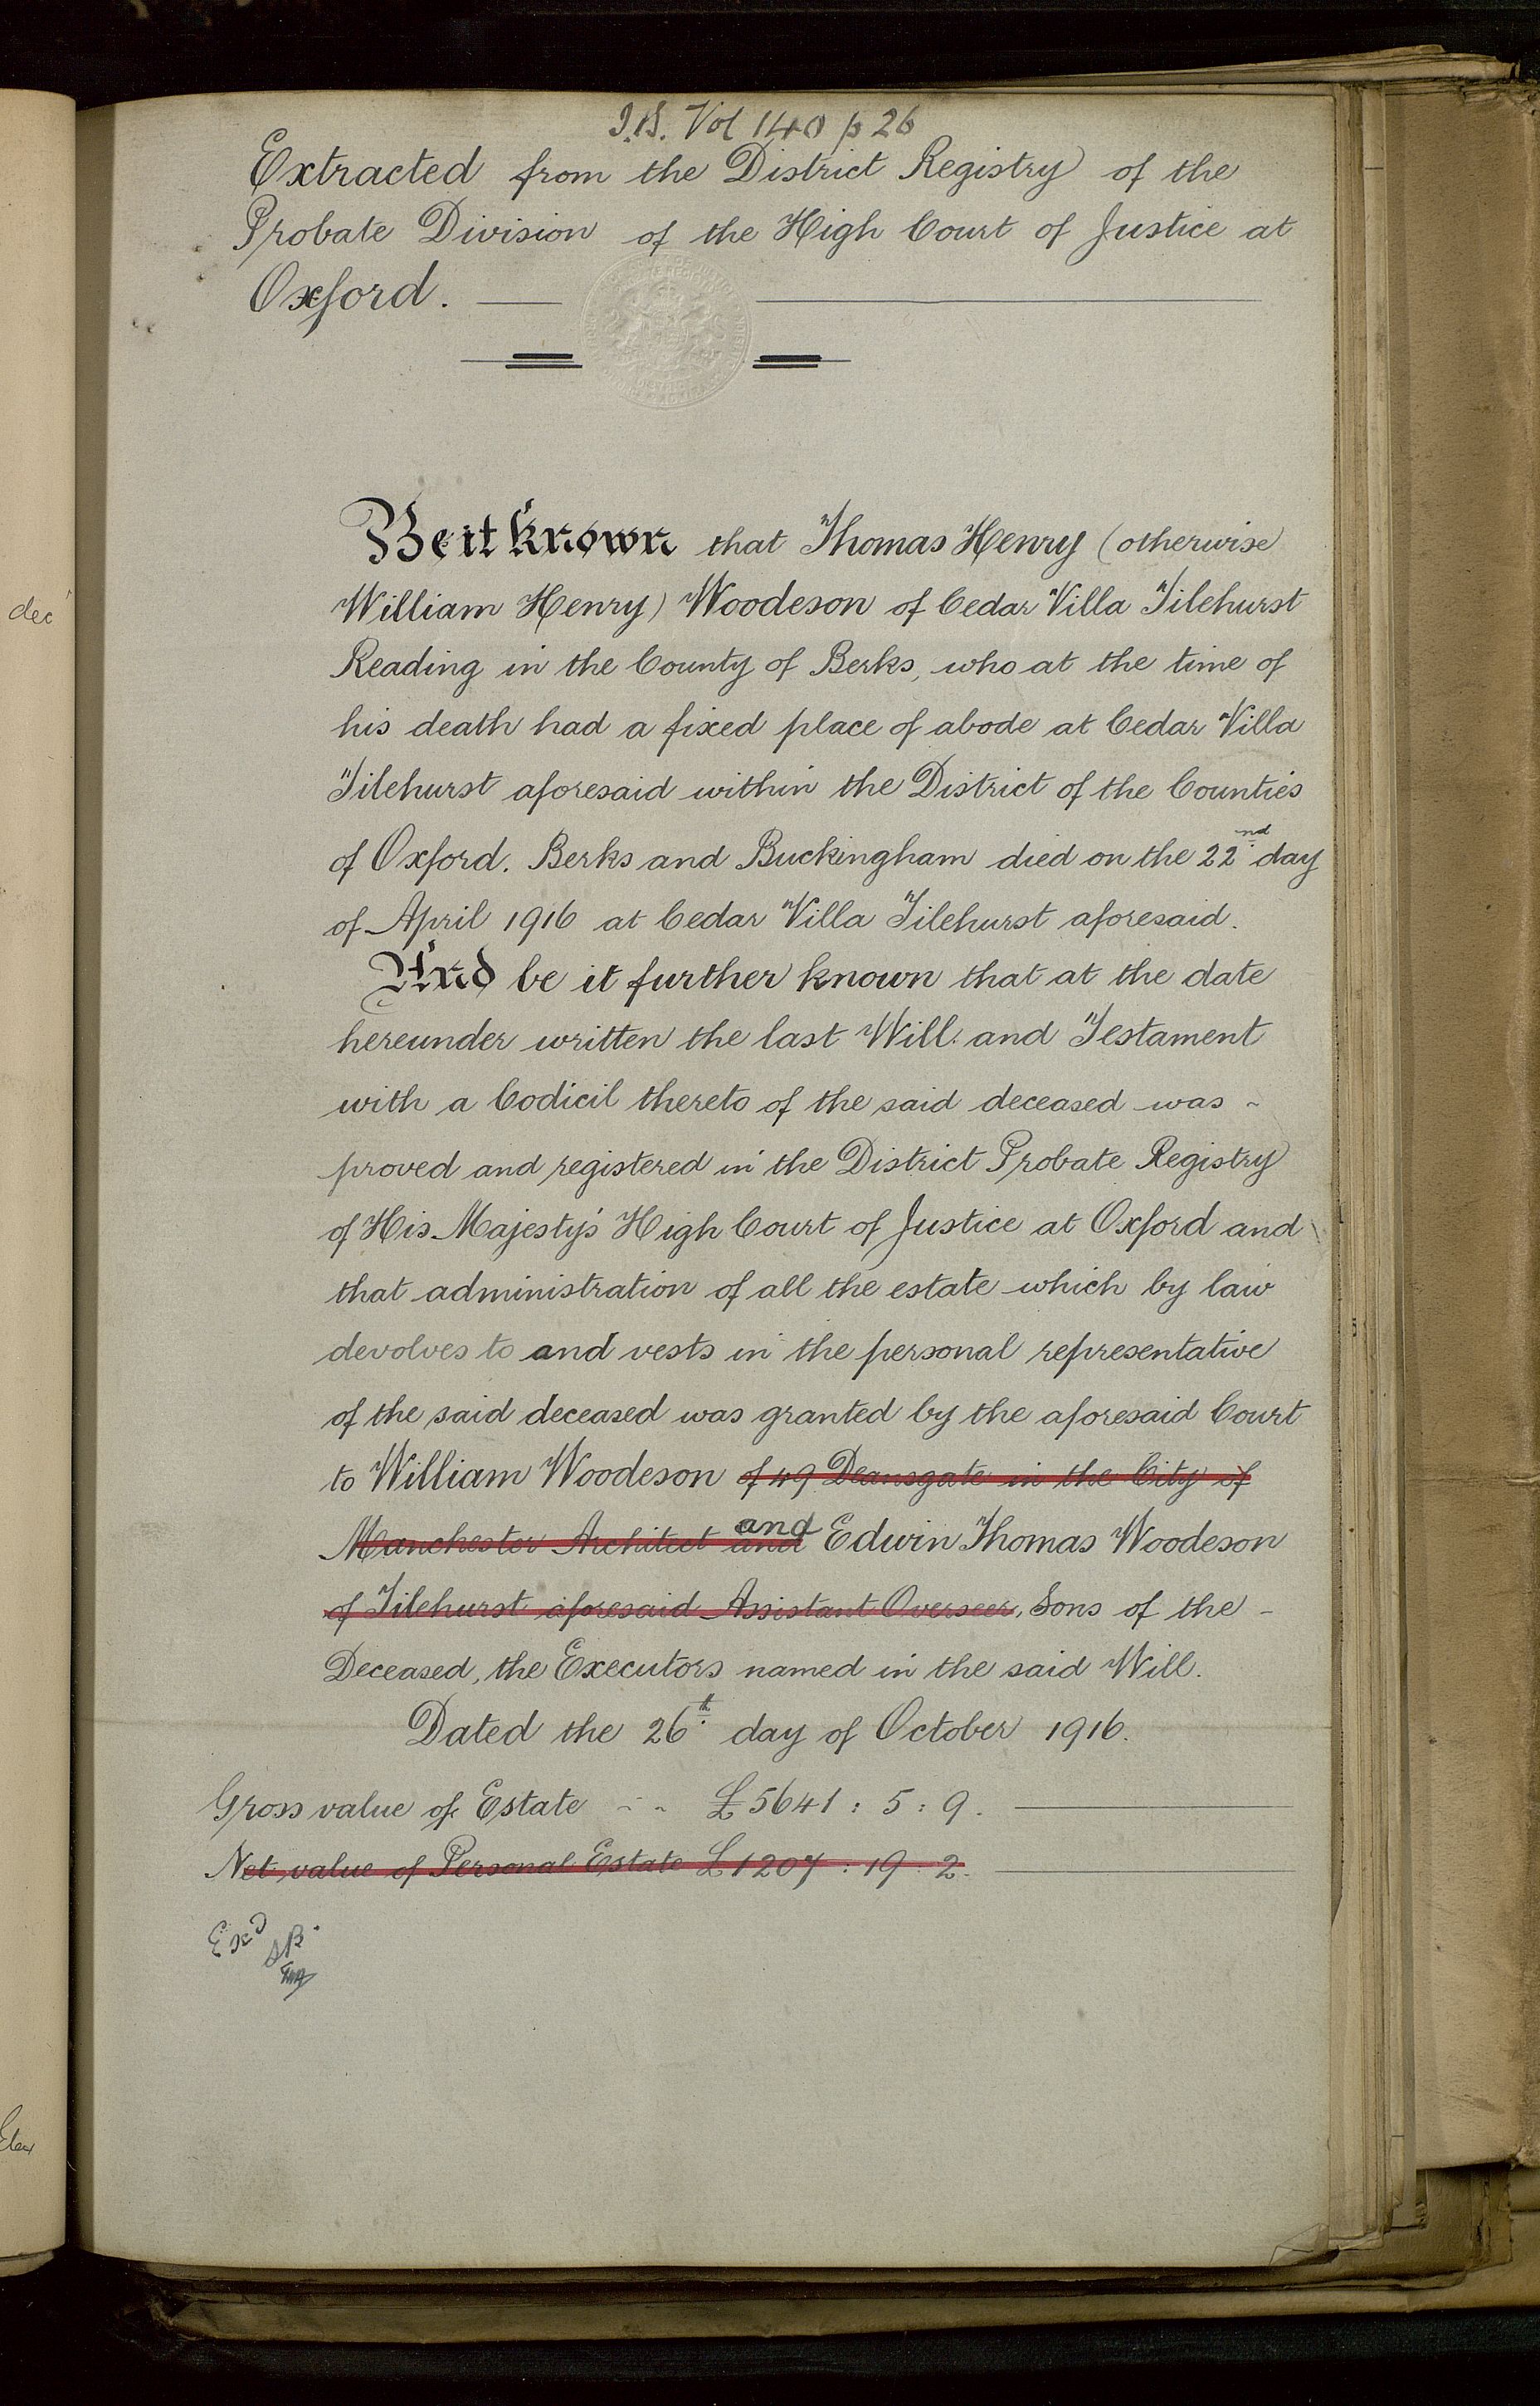 I.S. Vol 140 p 26
Extracted from the District Registry of the
Probate Division of the High Court of Justice at
Oxford.
Be it known that Thomas Henry (otherwise
William Henry) Woodeson of Cedar Villa Tilehurst
Reading in the County of Berks, who at the time of
his death had a fixed place of abode at Cedar Villa
Tilehurst aforesaid within the District of the Counties
of Oxford. Berks and Buckingham died on the 22nd day
of April 1916 at Cedar Villa Tilehurst aforesaid.
And be it further known that at the date
hereunder written the last Will and Testament
with a Codicil thereto of the said deceased was
proved and registered in the District Probate Registry
of His Majesty's High Court of Justice at Oxford and
that administration of all the estate which by law
devolves to and vests in the personal representative
of the said deceased was granted by the aforesaid Court
to William Woodeson of 49 Deansgate in the City of
Manchester Architect and and Edwin Thomas Woodeson
of Tilehurst aforesaid Assistant Overseer, Sons of the
Deceased, the Executors named in the said Will.
Dated the 26th day of October 1916.
Gross value of Estate - - £5641 : 5 : 9.
Net value of Personal Estate £1207 : 19 : 2.
Exd
dec